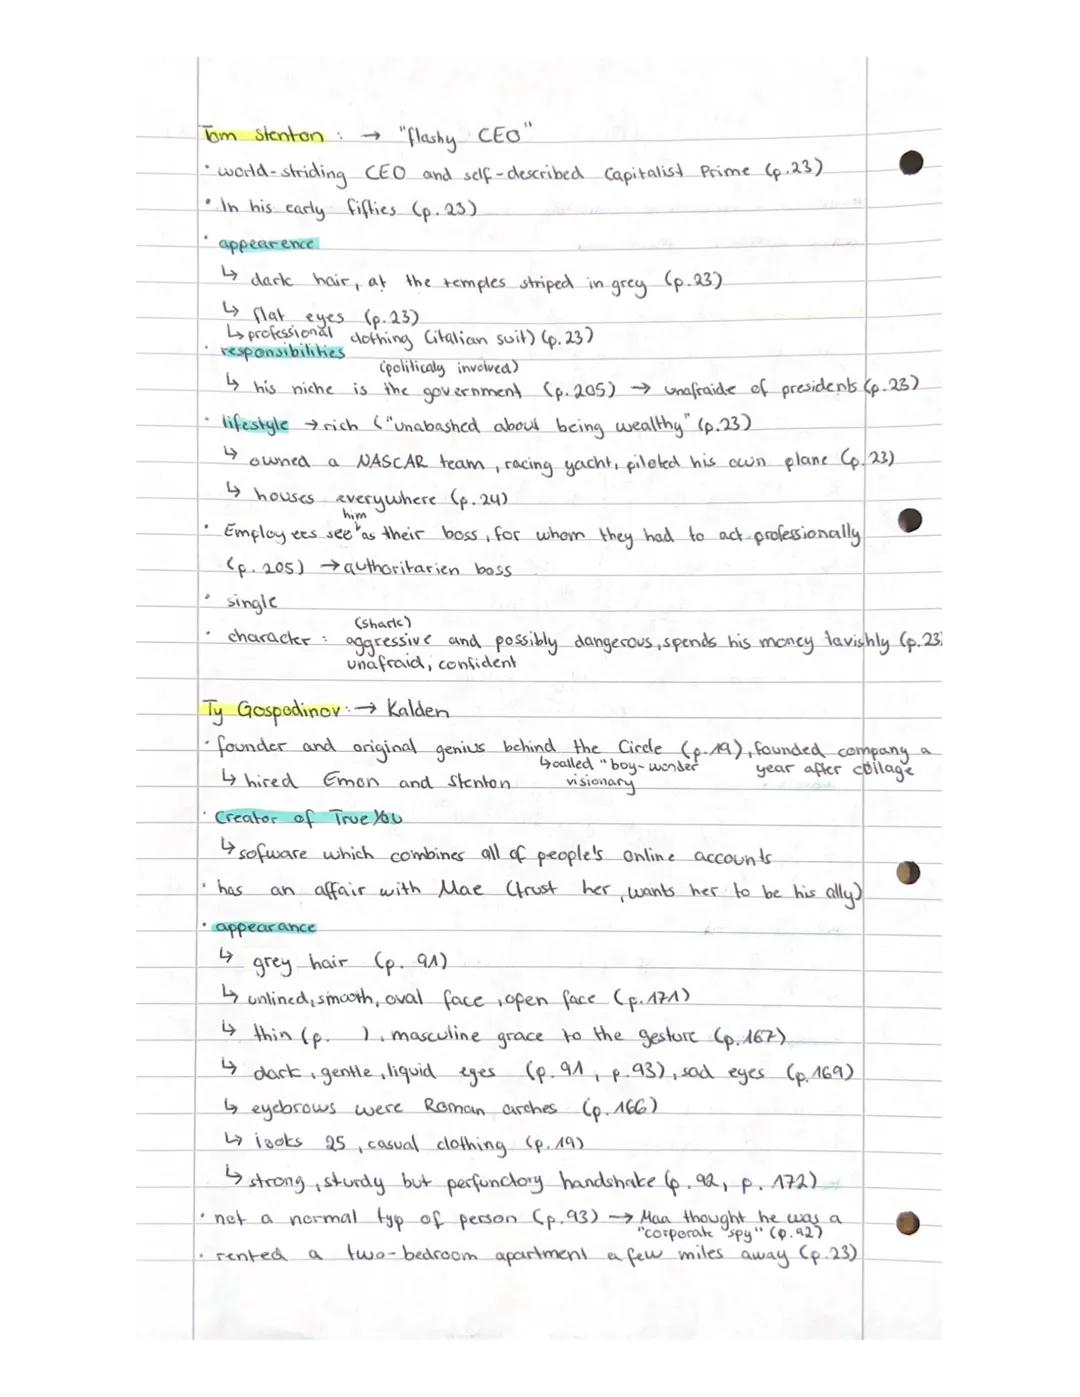 Tom Stenton : → "flashy CEO"
• world-striding CEO and self-described Capitalist Prime (p.23)
• In his early fifties (p. 23)
• appearence
↳ dark hair, at the temples striped in grey (p.23)
↳ flat eyes (p.23)
↳ professional clothing (italian suit) (p.23)
• responsibilities
(politicaly involved)
↳ his niche is the government (p. 205) → unafraide of presidents (p.23)
• lifestyle → rich ("unabashed about being wealthy" (p.23)
↳ owned a NASCAR team, racing yacht, piloted his own plane (p. 23)
↳ houses everywhere (p. 24)
• Employees see him as their boss, for whom they had to act professionally
(p. 205) → authoritarien boss
• single
(shark)
• character : aggressive and possibly dangerous, spends his money lavishly (p.23)
unafraid, confident
Ty Gospodinov : → Kalden
• founder and original genius behind the Circle (p.19), founded company a
↳ called "boy-wonder year after collage
↳ hired Emon and Stenton visionary
• Creator of TrueYou
↳ sofware which combines all of people's online accounts
• has an affair with Mae (trust her, wants her to be his ally)
• appearance
↳ grey hair (p. 91)
↳ unlined, smooth, oval face, open face (p. 171)
↳ thin (p. ), masculine grace to the gesture (p. 167)
↳ dark, gentle, liquid eyes (p. 91, p. 93), sad eyes (p. 169)
↳ eyebrows were Roman arches (p. 166)
↳ looks 25, casual clothing (p. 19)
↳ strong, sturdy but perfunctory handshake (p. 92, p. 172)
• not a normal typ of person (p. 93) → Maa thought he was a
"corporate spy" (p. 92)
• rented a two-bedroom apartment a few miles away (p. 23)